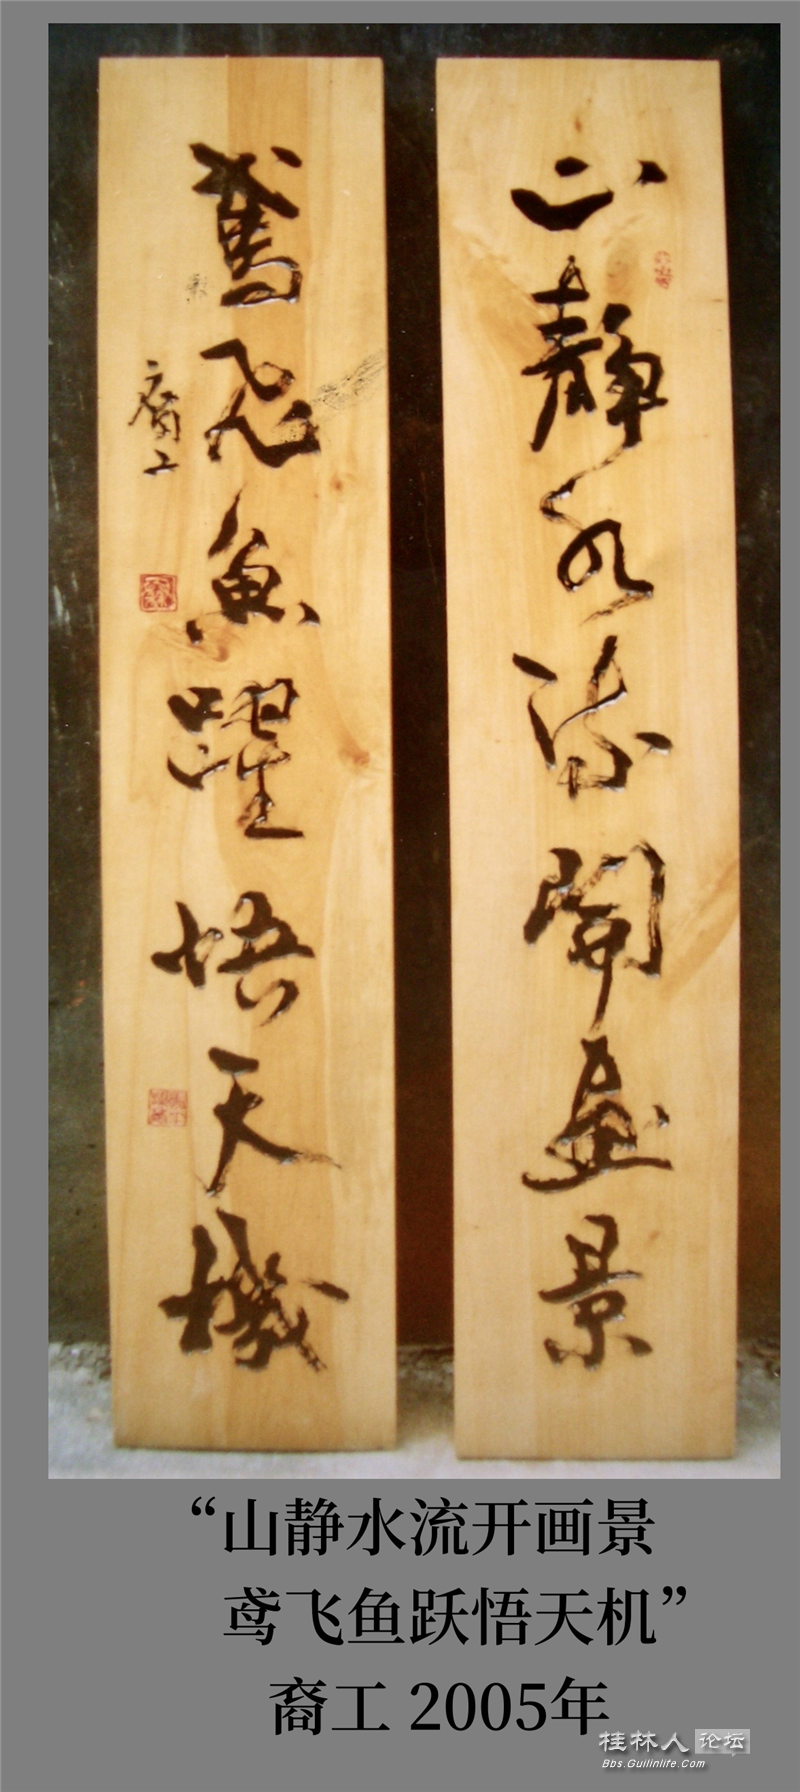 山靜水流開畫景
鳶飛魚躍悟天機
裔工
“山静水流开画景
鸢飞鱼跃悟天机”
裔工 2005年
桂林人论坛
Bbs.Guilinlife.Com